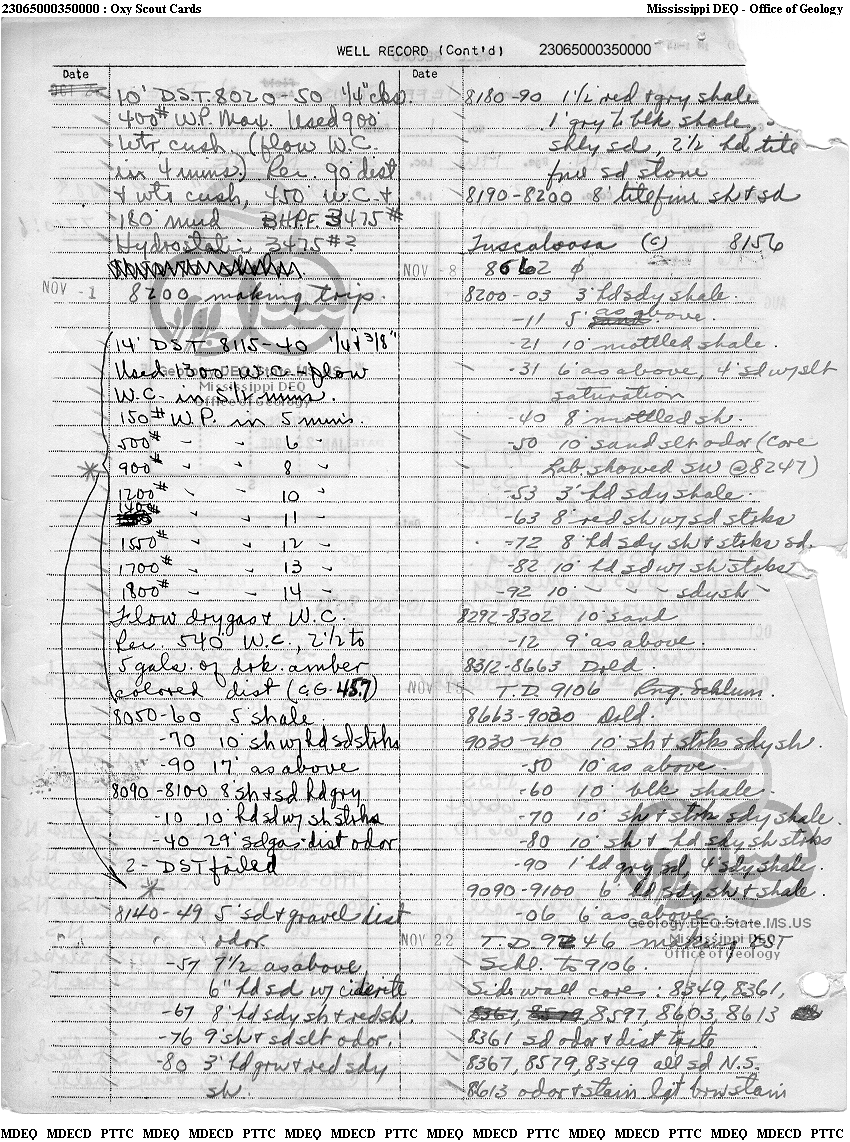 23065000350000 : Oxy Scout Cards
Mississippi DEQ - Office of Geology
WELL RECORD (Cont'd) 23065000350000
Date
10' D.S.T. 8020-50 1/4" cks.
400# W.P. Max. Used 900'
Wtr. cush. (flow W.C.
in 4 mins.) Rec. 90' dist
& wtr cush, 450' W.C. &
180' mud BHPF 3475#
Hydrostatic 3475#?
NOV -1 8200 making trip.
14' DST 8115-40 1/4" & 3/8"
Used 1300' W.C. - flow
W.C. in 5 1/2 mins.
150# W.P. in 5 mins.
500# " " 6 "
* 900# " " 8 "
1200# " " 10 "
1400# " " 11 "
1550# " " 12 "
1700# " " 13 "
1800# " " 14 "
Flow dry gas & W.C.
Rec. 540' W.C., 2 1/2 to
5 gals. of drk. amber
colored dist (GG 45.7)
8050-60 5' shale
-70 10' sh w/ hd sd strks
-90 17' as above
8090-8100 8' sh & sd hd gry
-10 10' hd sd w/ sh strks
-40 29' sd gas-dist odor
2 - DST failed
*
8140-49 5' sd & gravel dist
odor
-57 7 1/2 as above
6" hd sd w/ ciderite
-67 8' hd sdy sh & red sh.
-76 9' sh & sd slt odor.
-80 3' hd grn & red sdy
sh.
Date
8180-90 1 1/2 red & gry shale
1' gry & blk shale,
shly sd, 2 1/2 hd tite
fine sd stone
8190-8200 8' tite fine sh & sd
Tuscaloosa (c) 8156
NOV -8 8662 ϕ
8200-03 3' hd sdy shale.
-11 5' as above.
-21 10' mottled shale.
-31 6' as above, 4' sd w/ slt
saturation
-40 8' mottled sh.
-50 10' sand slt odor (Core
Lab. showed SW @ 8247)
-53 3' hd sdy shale.
-63 8' red sh w/ sd strks
-72 8' hd sdy sh & strks sd.
-82 10' hd sd w/ sh strks
-92 10' " " " sdy sh "
8292-8302 10' sand
-12 9' as above.
8312-8663 Drld.
T.D. 9106 Rng. Schlum.
8663-9030 Drld.
9030-40 10' sh & strks sdy sh.
-50 10' as above.
-60 10' blk shale.
-70 10' sh & strks sdy shale.
-80 10' sh & hd sdy sh strks
-90 1' hd gry sd, 4' sdy shale.
9090-9100 6' hd sdy sh & shale.
-06 6' as above
NOV 22 T.D. 9246 making DST
Schl. to 9106.
Side wall cores: 8349, 8361,
8367, 8579, 8597, 8603, 8613
8361 sd odor & dist taste
8367, 8579, 8349 all sd N.S.
8613 odor & stain lgt brn stain
Geology.DEQ.State.MS.US
Mississippi DEQ
Office of Geology
Geology.DEQ.State.MS.US
Mississippi DEQ
Office of Geology
MDEQ MDECD PTTC MDEQ MDECD PTTC MDEQ MDECD PTTC MDEQ MDECD PTTC MDEQ MDECD PTTC MDEQ MDECD PTTC